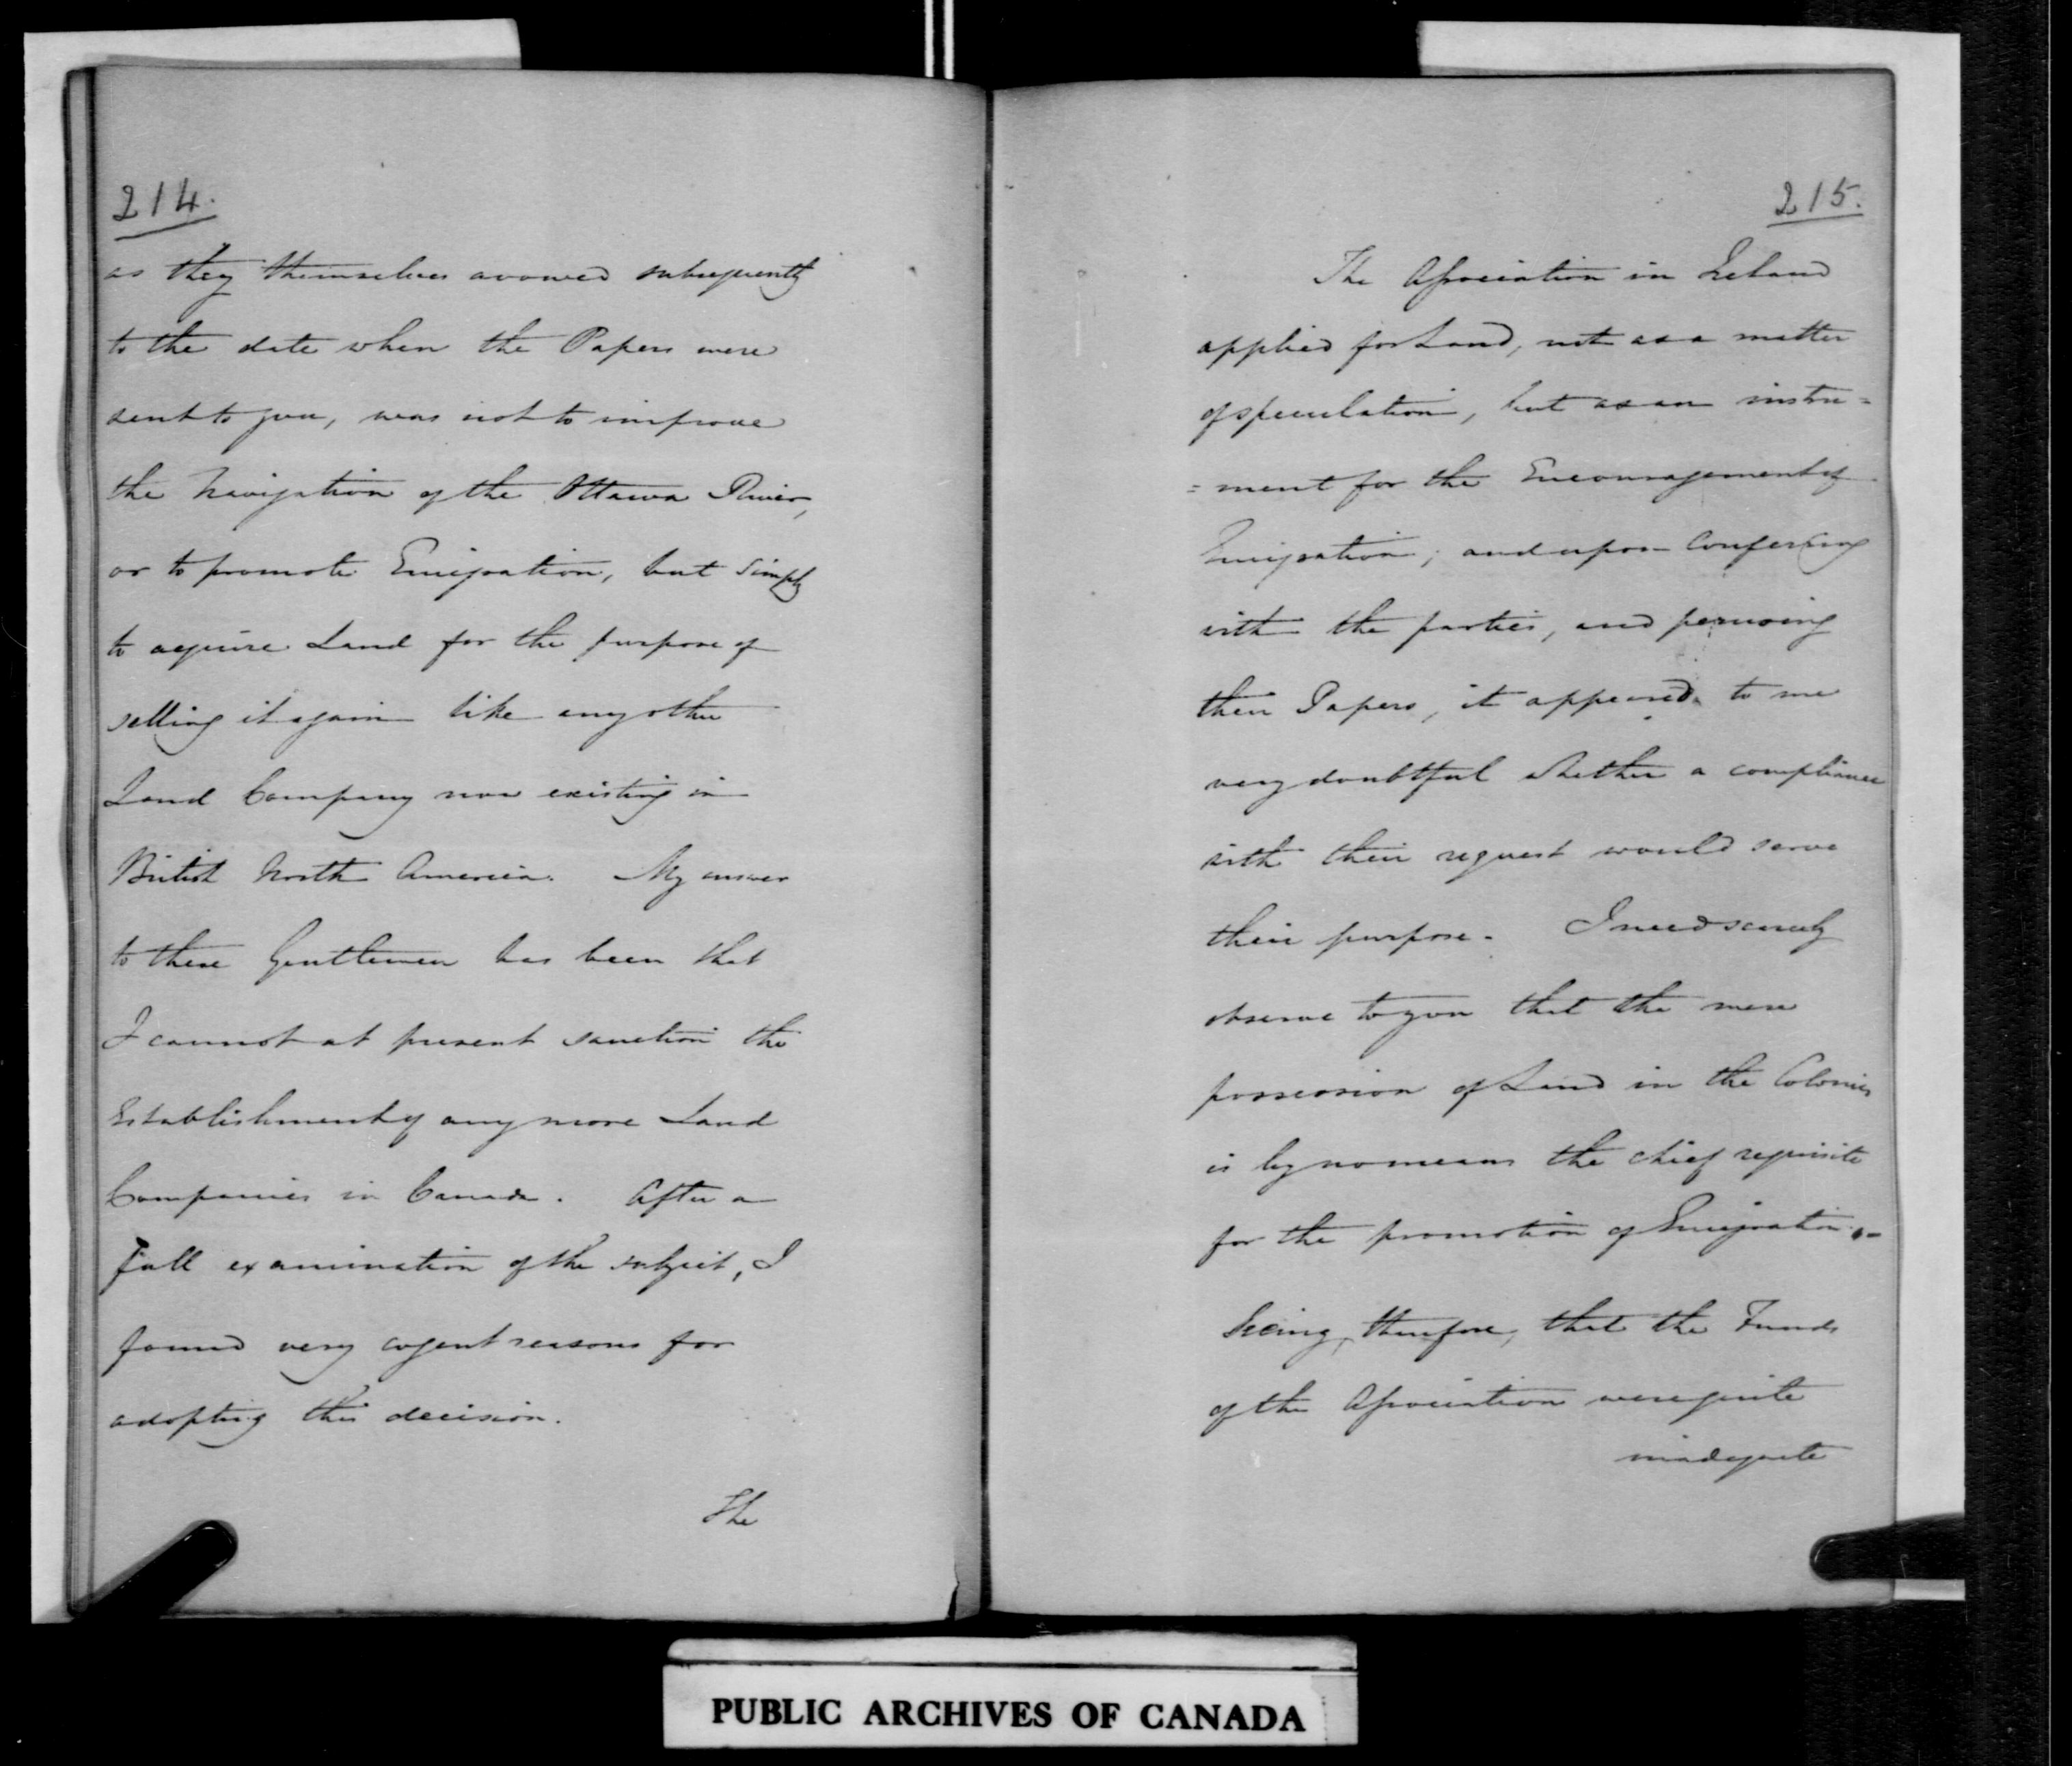 214.
as they themselves avowed subsequently
to the date when the Papers were
sent to you, was not to improve
the Navigation of the Ottawa River,
or to promote Emigration, but simply
to acquire Land for the purpose of
selling it again like any other
Land Company now existing in
British North America. My answer
to these Gentlemen has been that
I cannot at present sanction the
Establishment of any more Land
Companies in Canada. After a
full examination of the subject, I
found very cogent reasons for
adopting this decision.
The
215.
The Association in Ireland
applied for Land, not as a matter
of speculation, but as an instru=
=ment for the Encouragement of
Emigration; and upon Conferring
with the parties, and perusing
their Papers, it appeared to me
very doubtful whether a compliance
with their request would serve
their purpose. I need scarcely
observe to you that the mere
possession of Land in the Colonies
is by no means the chief requisite
for the promotion of Emigration.-
Seeing, therefore, that the Funds
of the Association were quite
inadequate
PUBLIC ARCHIVES OF CANADA